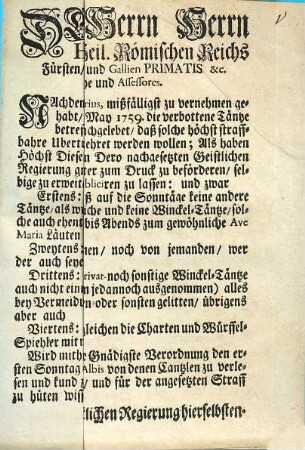 Herrn Herrn
Heil. Römischen Reichs
Fürsten/ und Gallien PRIMATIS &c.
he und Assessores.
Nachdem rius, mißfälligst zu vernehmen ge-
habt/ May 1759. die verbottene Täntze
betref schgelebet/ daß solche höchst straff-
bahre Ubertt ehret werden wollen; Als haben
Höchst Diesen Dero nachgesetzten Geistlichen
Regierung gner zum Druck zu beförderen/ sel-
bige zu erweit bliciren zu lassen: und zwar
Erstens: ß auf die Sonntäge keine andere
Täntze/ als wiche und keine Winckel-Täntze/ sol-
che auch eben bis Abends zum gewöhnliche Ave
Maria Läuten
Zweytens nen/ noch von jemanden/ wer
der auch seye
Drittens: rivat- noch sonstige Winckel-Täntze
auch nicht eini n jedannoch ausgenommen) alles
bey Vermeidun- oder sonsten gelitten/ übrigens
aber auch
Viertens: gleichen die Charten und Würffel-
Spiehler mit
Wird mith Gnädigste Verordnung den er-
sten Sonntag Albis von denen Cantzlen zu verle-
sen und kund z/ und für der angesetzten Straff
zu hüten wiss
lichen Regierung hierselbsten.